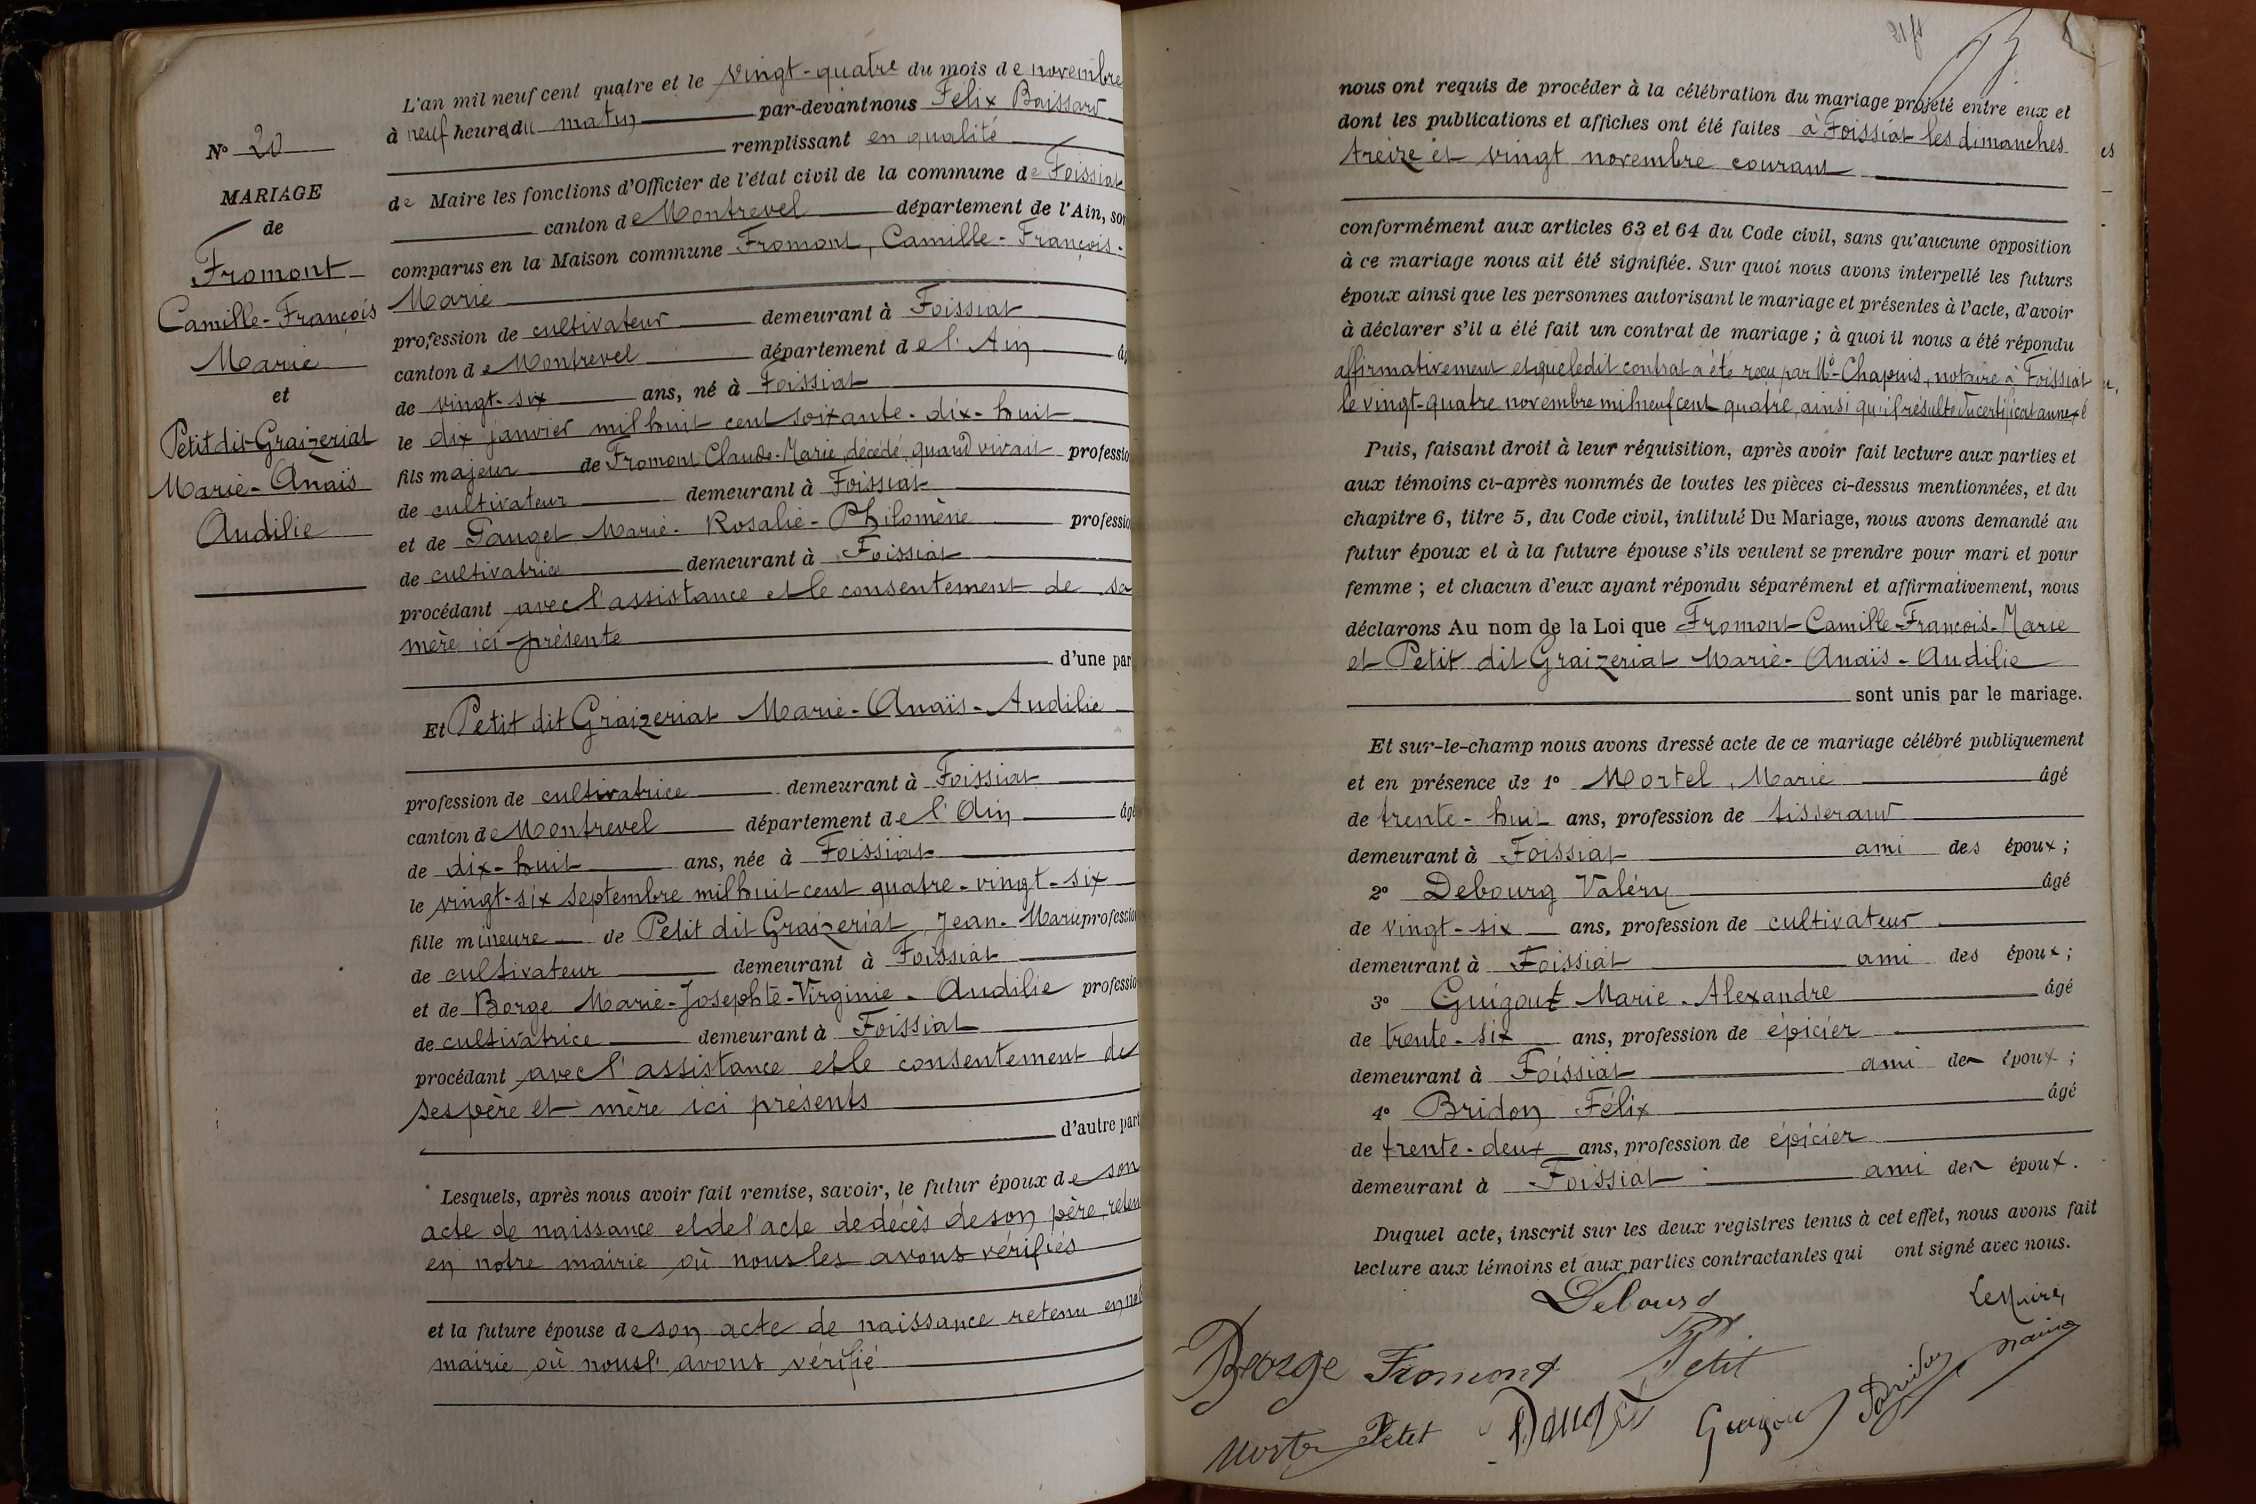 N° 20
MARIAGE
de
Fromont
Camille-François
Marie
et
Petit dit Graizeriat
Marie-Anaïs
Audilie
L'an mil neuf cent quatre et le vingt-quatre du mois de novembre
à neuf heures du matin par-devant nous Félix Boissard
remplissant en qualité
de Maire les fonctions d'Officier de l'état civil de la commune de Foissiat
canton de Montrevel département de l'Ain, son
comparus en la Maison commune Fromont, Camille-François-
Marie
profession de cultivateur demeurant à Foissiat
canton de Montrevel département de l'Ain âg
de vingt-six ans, né à Foissiat
le dix janvier mil huit cent soixante-dix-huit
fils majeur de Fromont Claude-Marie, décédé, quand vivait professio
de cultivateur demeurant à Foissiat
et de Danget Marie-Rosalie-Philomène professio
de cultivatrice demeurant à Foissiat
procédant avec l'assistance et le consentement de sa
mère ici présente
d'une par
Et Petit dit Graizeriat Marie-Anaïs-Audilie
profession de cultivatrice demeurant à Foissiat
canton de Montrevel département de l'Ain âgé
de dix-huit ans, née à Foissiat
le vingt-six septembre mil huit cent quatre-vingt-six
fille mineure de Petit dit Graizeriat, Jean-Marie profession
de cultivateur demeurant à Foissiat
et de Borge Marie-Josephte-Virginie-Audilie professio
de cultivatrice demeurant à Foissiat
procédant avec l'assistance et le consentement de
ses père et mère ici présents
d'autre part
Lesquels, après nous avoir fait remise, savoir, le futur époux de son
acte de naissance et de l'acte de décès de son père, reten
en notre mairie où nous les avons vérifiés
et la future épouse de son acte de naissance retenu en not
mairie où nous l'avons vérifié
nous ont requis de procéder à la célébration du mariage projeté entre eux et
dont les publications et affiches ont été faites à Foissiat les dimanches
treize et vingt novembre courant
conformément aux articles 63 et 64 du Code civil, sans qu'aucune opposition
à ce mariage nous ait été signifiée. Sur quoi nous avons interpellé les futurs
époux ainsi que les personnes autorisant le mariage et présentes à l'acte, d'avoir
à déclarer s'il a été fait un contrat de mariage ; à quoi il nous a été répondu
affirmativement et que ledit contrat a été reçu par Me Chapuis, notaire à Foissiat
le vingt-quatre novembre mil neuf cent quatre, ainsi qu'il résulte du certificat annexé
Puis, faisant droit à leur réquisition, après avoir fait lecture aux parties et
aux témoins ci-après nommés de toutes les pièces ci-dessus mentionnées, et du
chapitre 6, titre 5, du Code civil, intitulé Du Mariage, nous avons demandé au
futur époux et à la future épouse s'ils veulent se prendre pour mari et pour
femme ; et chacun d'eux ayant répondu séparément et affirmativement, nous
déclarons Au nom de la Loi que Fromont-Camille-François-Marie
et Petit dit Graizeriat Marie-Anaïs-Audilie
sont unis par le mariage.
Et sur-le-champ nous avons dressé acte de ce mariage célébré publiquement
et en présence de 1° Mortel, Marie âgé
de trente-huit ans, profession de tisserand
demeurant à Foissiat ami des époux ;
2° Debourg Valéry âgé
de vingt-six ans, profession de cultivateur
demeurant à Foissiat ami des époux ;
3° Guigout Marie-Alexandre âgé
de trente-six ans, profession de épicier
demeurant à Foissiat ami des époux ;
4° Bridon Félix âgé
de trente-deux ans, profession de épicier
demeurant à Foissiat ami des époux.
Duquel acte, inscrit sur les deux registres tenus à cet effet, nous avons fait
lecture aux témoins et aux parties contractantes qui ont signé avec nous.
Debourg
Le Maire,
Borge Fromont Petit
Petit